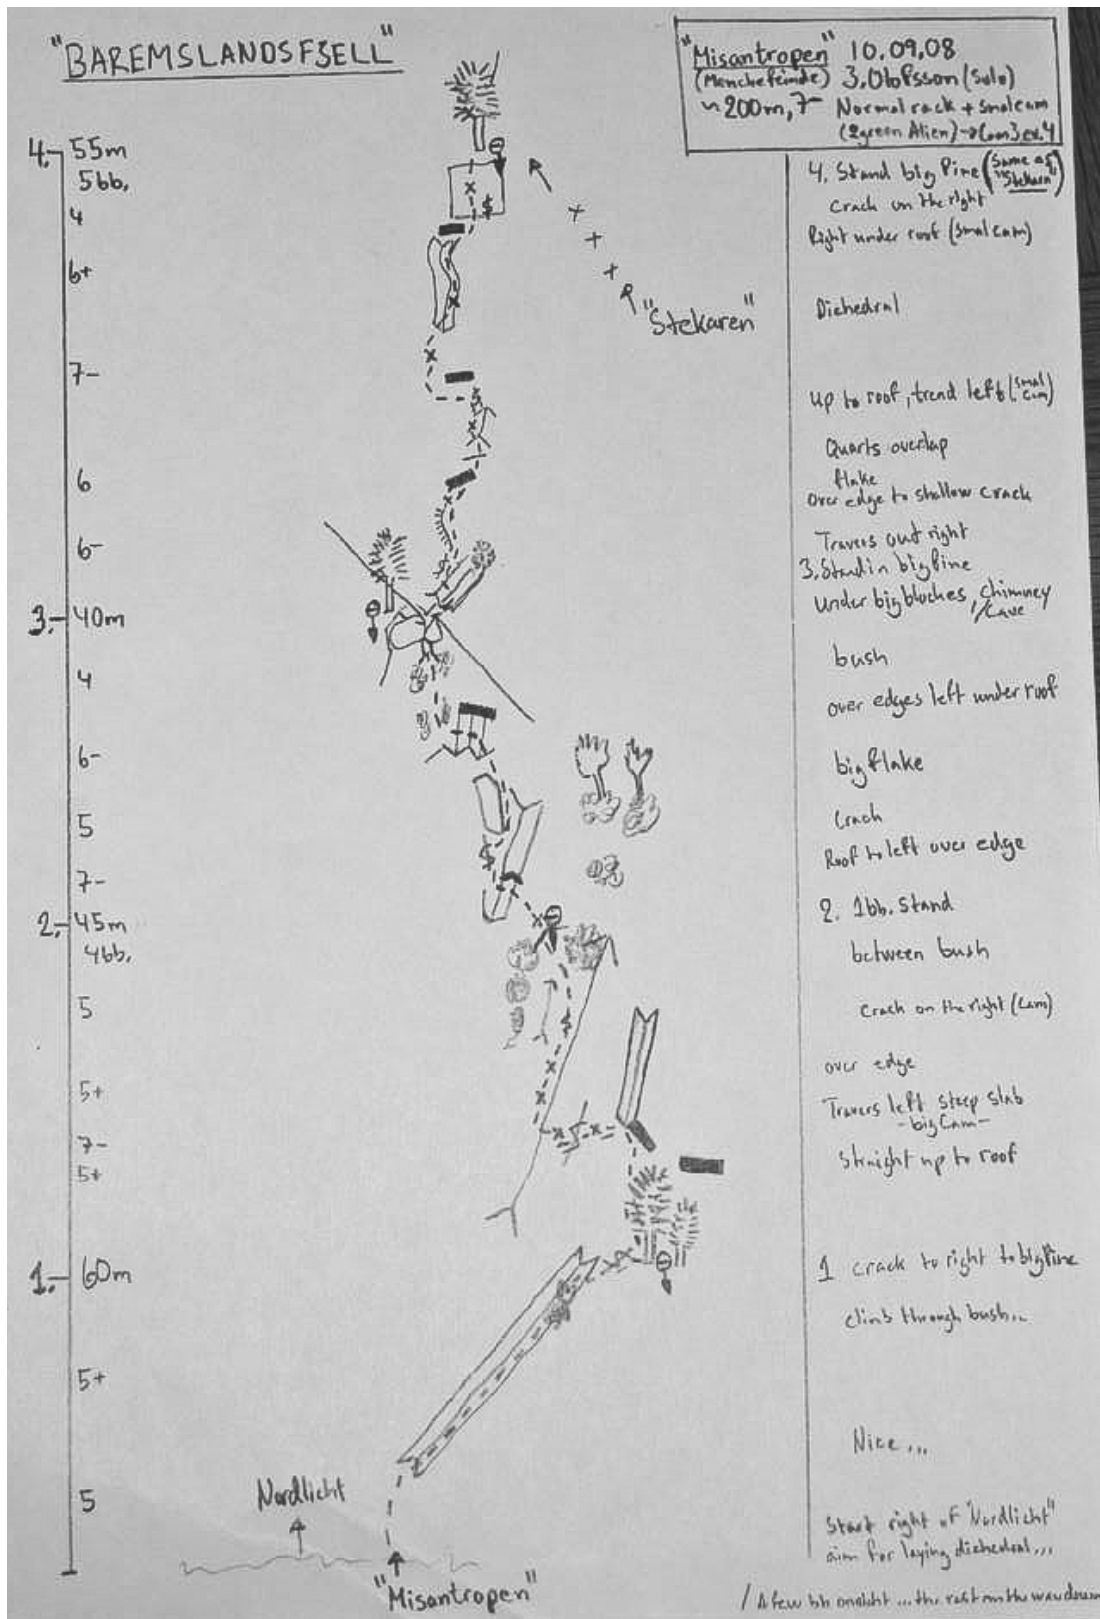 "BAREMSLANDSFJELL"
"Misantropen" 10.09.08
(Menchefeinde) J.Olofsson (Solo)
~200m, 7- Normal rack + smal cam
(2green Alien) → Cam3 ex.4
4. 55m
5bb.
4
6+
7-
6
6-
3. 40m
4
6-
5
7-
2. 45m
4bb.
5
5+
7-
5+
1. 60m
5+
5
"Stekaren"
Nordlicht
"Misantropen"
4. Stand big Pine (Same as "Stekarn")
Crack on the right
Right under roof (smal cam)
Diehedral
up to roof, trend left (smal cam)
Quarts overlap
flake
over edge to shallow crack
Travers out right
3. Stand in big Pine
Under big bloches, Chimney
/Cave
bush
over edges left under roof
big flake
Crack
Roof to left over edge
2. 1bb. Stand
between bush
Crack on the right (Cam)
over edge
Travers left steep slab
-big Cam-
Straight up to roof
1 crack to right to big Pine
climb through bush..
Nice...
Start right of "Nordlicht"
aim for laying diehedral...
/ A few bb onsight ... the rest on the way down